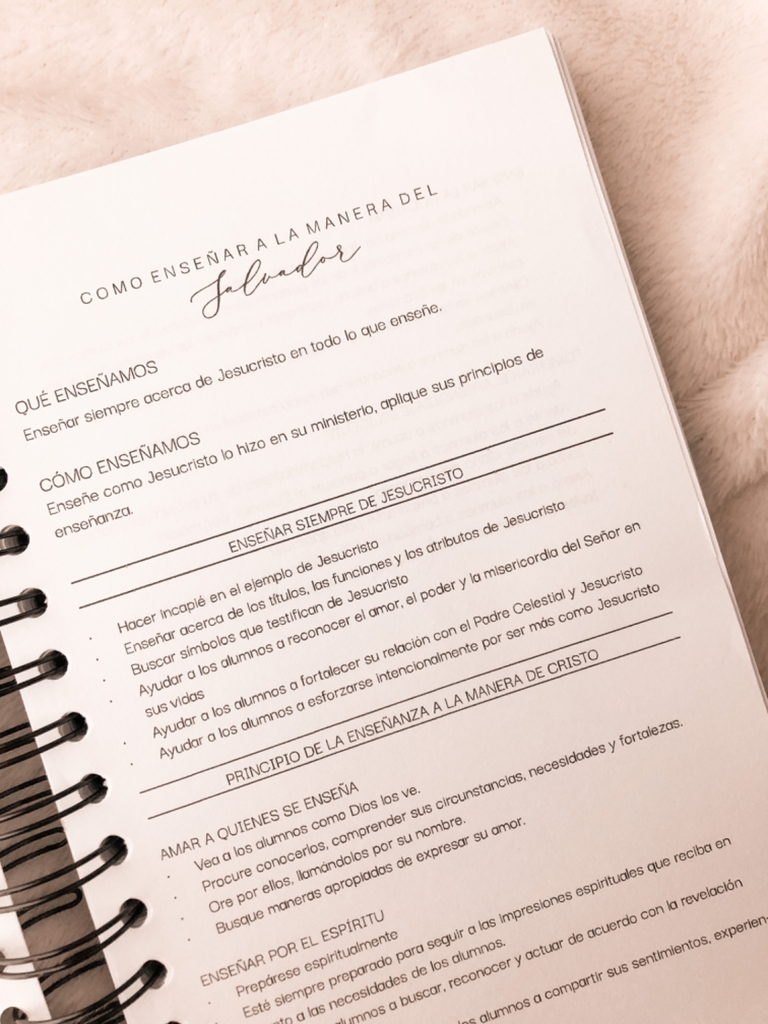 COMO ENSEÑAR A LA MANERA DEL
Salvador
QUÉ ENSEÑAMOS
Enseñar siempre acerca de Jesucristo en todo lo que enseñe.
CÓMO ENSEÑAMOS
Enseñe como Jesucristo lo hizo en su ministerio, aplique sus principios de
enseñanza.
ENSEÑAR SIEMPRE DE JESUCRISTO
· Hacer incapié en el ejemplo de Jesucristo
· Enseñar acerca de los títulos, las funciones y los atributos de Jesucristo
· Buscar símbolos que testifican de Jesucristo
· Ayudar a los alumnos a reconocer el amor, el poder y la misericordia del Señor en
sus vidas
· Ayudar a los alumnos a fortalecer su relación con el Padre Celestial y Jesucristo
· Ayudar a los alumnos a esforzarse intencionalmente por ser más como Jesucristo
PRINCIPIO DE LA ENSEÑANZA A LA MANERA DE CRISTO
AMAR A QUIENES SE ENSEÑA
· Vea a los alumnos como Dios los ve.
· Procure conocerlos, comprender sus circunstancias, necesidades y fortalezas.
· Ore por ellos, llamándolos por su nombre.
· Busque maneras apropiadas de expresar su amor.
ENSEÑAR POR EL ESPÍRITU
· Prepárese espiritualmente
· Esté siempre preparado para seguir a las impresiones espirituales que reciba en
a las necesidades de los alumnos.
a buscar, reconocer y actuar de acuerdo con la revelación
alumnos a compartir sus sentimientos, experien-